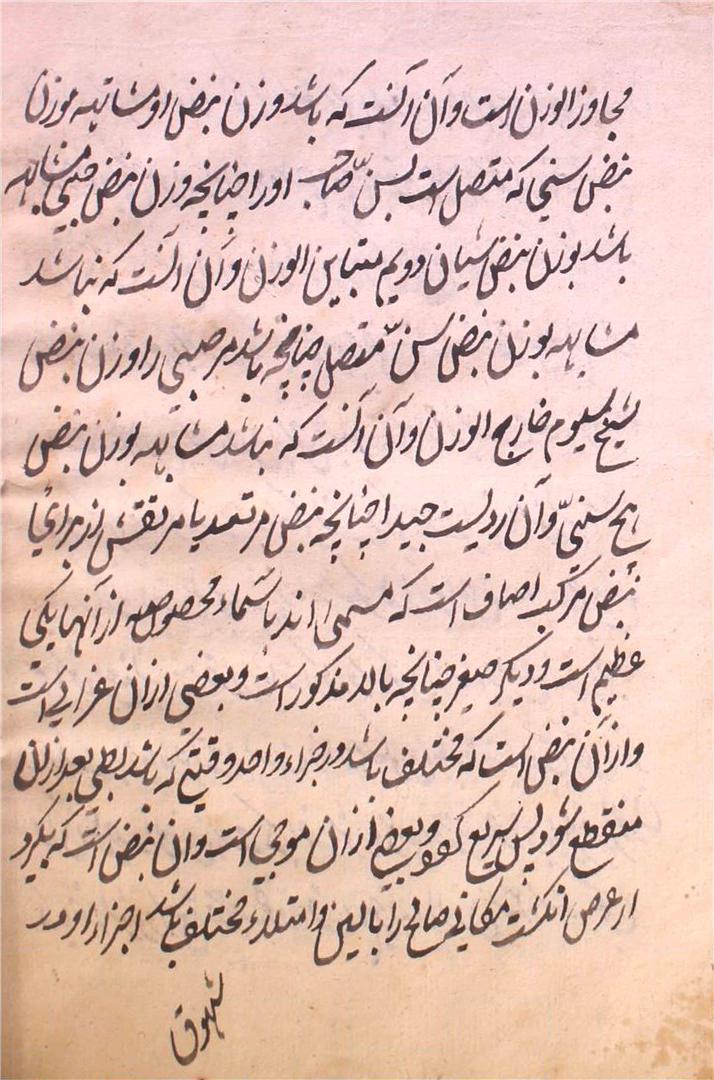 مجاوز الوزن است و آن آنست که باشد وزن نبض او مشابه بوزن
نبض سنی که متصل است بسن صاحب او را چنانچه وزن نبض صبی مشابه
باشد بوزن نبض شبان دویم متباین الوزن و آن آنست که نباشد
مشابه بوزن نبض سن متصل چنانچه باشد مر صبی را وزن نبض
شیخ سیوم خارج الوزن و آن آنست که نباشد مشابه بوزن نبض
هیچ سنی و آن ردیست جدا چنانچه نبض مرتعد یا مرتعش از برای
نبض مرکب اصناف است که مسمی اند باسماء مخصوصه از آنها یکی
عظیم است و دیگر صغیر چنانچه بالا مذکور است و بعضی ازان غزالی است
و ازان نبض است که مختلف باشد در جزاء واحد وقتیکه باشد بطی بعد ازان
منقطع شود پس سریع و بعضی ازان موجی است و ان نبض است که بگیرد
از عرض انگشت مکانی صالح را بالین و امتلاء مختلف باشد اجزاء او در
شهوق